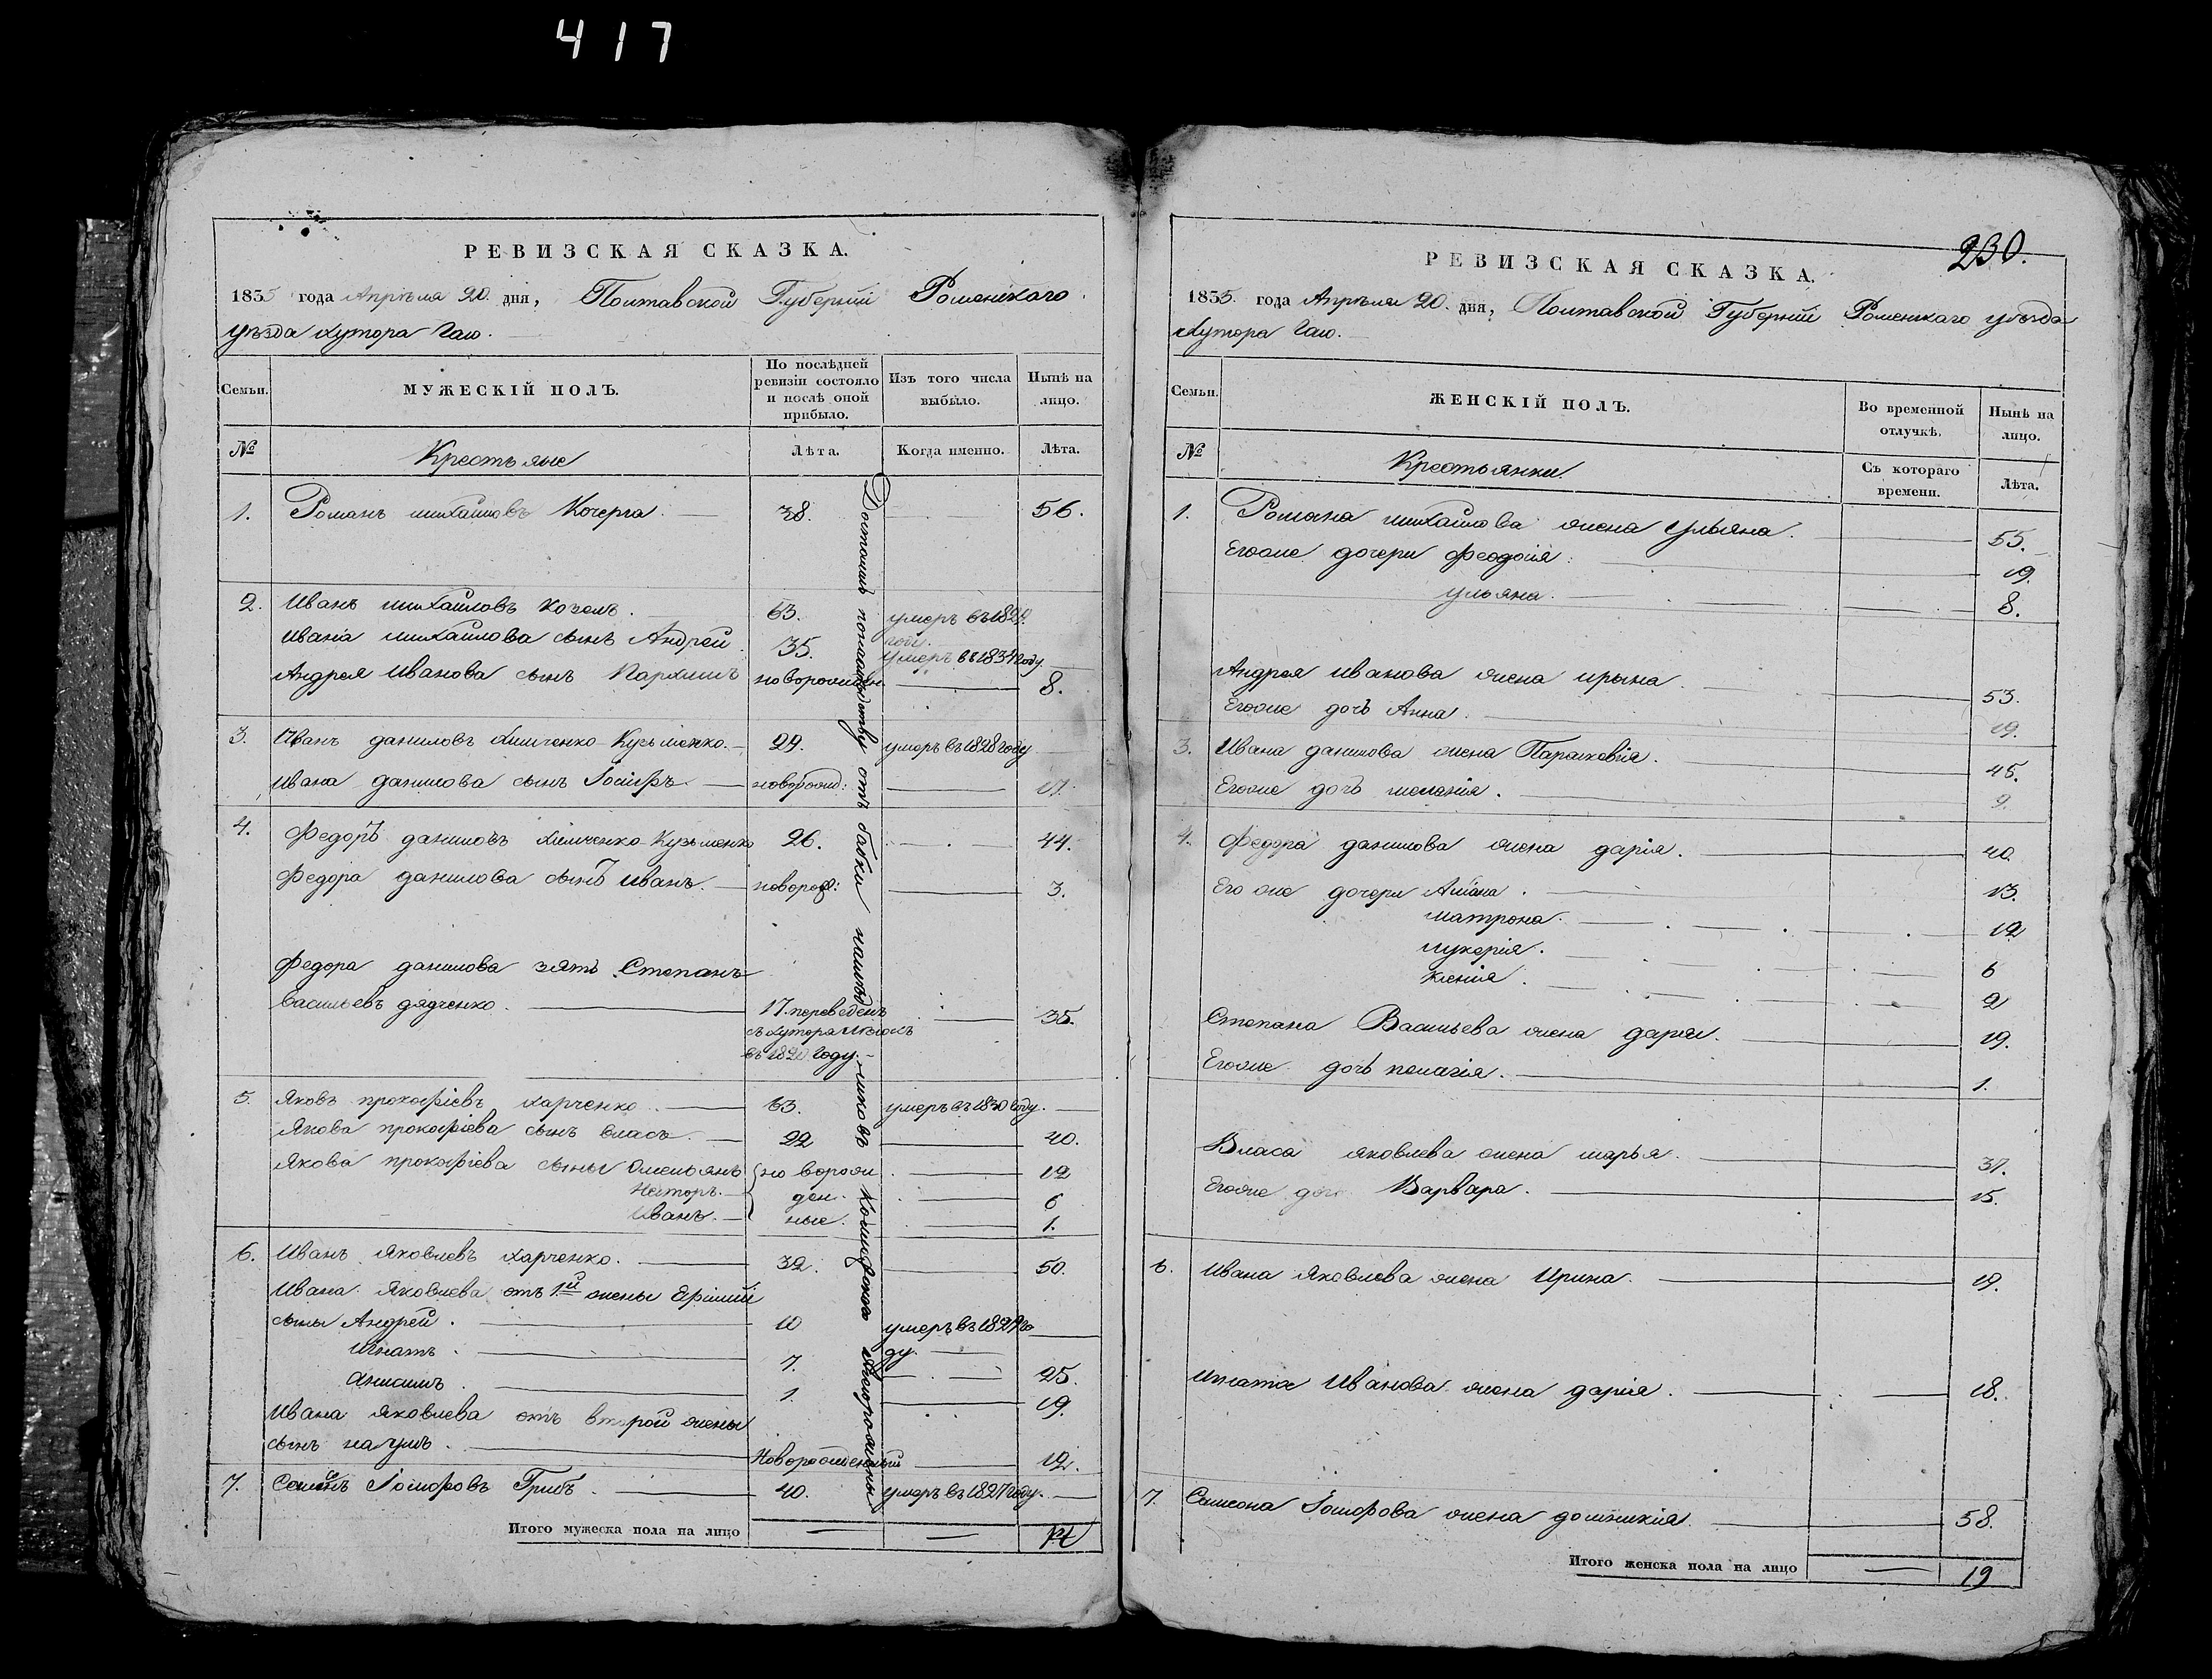 417
РЕВИЗСКАЯ СКАЗКА.
1835 года Апрѣля 20. дня, Полтавской Губерніи Роменского
уѣзда хутора Гаю.
Семьи. МУЖЕСКІЙ ПОЛЪ. По послѣдней ревизіи состояло и послѣ оной прибыло. Изъ того числа выбыло. Нынѣ на лицо.
№ Крестьяне Лѣта. Когда именно. Лѣта.
1. Романъ михайловъ Кочерга. 38. 56.
2. Иванъ михайловъ козелъ. 63. умеръ въ 1829. году.
Ивана михайлова сынъ Андрей 35. умеръ въ 1834 году.
Андрея Иванова сынъ Пархимъ новорожден 8.
3. Иванъ даниловъ химченко-Кузьменко. 29. умеръ въ 1828 году
Ивана данилова сынъ Іосифъ новорожд: 17.
4. Федоръ даниловъ химченко-Кузьменко 26. 44.
Федора данилова сынъ Иванъ. новорож: 3.
Федора данилова зять Степанъ
Васильевъ дядченко. 17. переведенъ 35.
съ хутора
въ 1820. году.
5. Яковъ прокофіевъ харченко. 63. умеръ въ 1830 году.
Якова прокофіева сынъ власъ. 22 40.
Якова прокофіева сыны Омельянъ новорож 12
Несторъ. ден 6
Иванъ. ные. 1.
6. Иванъ Яковлевъ харченко. 32. 50.
Ивана Яковлева отъ 1й жены
сыны Андрей. 10 умеръ въ 1827 го
ду.
Игнатъ. 7. 25.
Анисимъ. 1. 19.
Ивана Яковлева отъ второй жены
сынъ наумъ. Новорожденный 12.
7. Самсонъ Іосифовъ Грибъ. 40. умеръ въ 1827 году.
Итого мужеска пола на лицо 12
отъ бабки нашей
230.
РЕВИЗСКАЯ СКАЗКА.
1835. года Апрѣля 20. дня, Полтавской Губерніи Роменского уѣзда
хутора Гаю.
Семьи. ЖЕНСКІЙ ПОЛЪ. Во временной отлучкѣ. Нынѣ на лицо.
№ Крестьянки. Съ котораго времени. Лѣта.
1. Романа михайлова жена Ульяна. 55.
Егоже дочери Феодосія. 19.
ульяна. 8.
Андрея Иванова жена ирына. 53.
Егоже дочь Анна. 19.
3. Ивана данилова жена Парасковія. 45.
Егоже дочь меланія. 9.
4. Федора данилова жена дарія. 40.
Его же дочери 13.
матрона. 12
лукерія. 6
ксенія. 2
Степана Васильева жена дарія. 19.
Егоже дочь пелагія. 1.
Власа яковлева жена марья. 37.
Егоже дочь Варвара. 15.
6. Ивана Яковлева жена Ирина. 19.
Игната Иванова жена дарія. 18.
7. Самсона Іосифова жена домникія. 58.
Итого женска пола на лицо 19